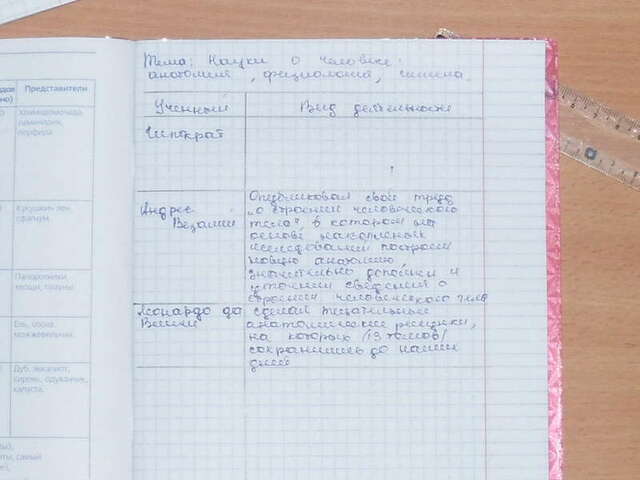 Представители
Хламидомонада,
ламинария,
порфира
Кукушкин лен,
сфагнум
Папоротники,
хвощи, плауны
Ель, сосна,
можжевельник
Дуб, эвкалипт,
кирень, одуванчик,
капуста,
Тема: Науки о человеке:
анатомия, физиология, гигиена.
Ученный Вид деятельности
Гиппократ
Андрес Везалий
Опубликовал свой труд
„о строении человеческого
тела" в котором на
основе накопленных
исследований построил
новую анатомию,
значительно дополнил и
уточнил сведения о
строении человеческого тела
Леонардо да Винчи
сделал тщательные
анатомические рисунки,
на которых /13 томов/
сохранились до наших
дней